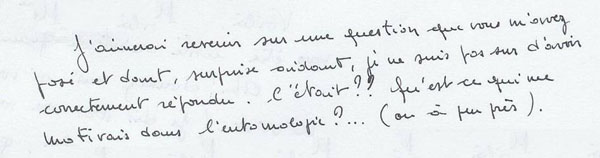 J'aimerai revenir sur une question que vous m'avez
posé et dont, surprise aidant, je ne suis pas sur d'avoir
correctement répondu. C'était ?? Qu'est ce qui me
motivais dans l'entomologie ?... (ou à peu près).